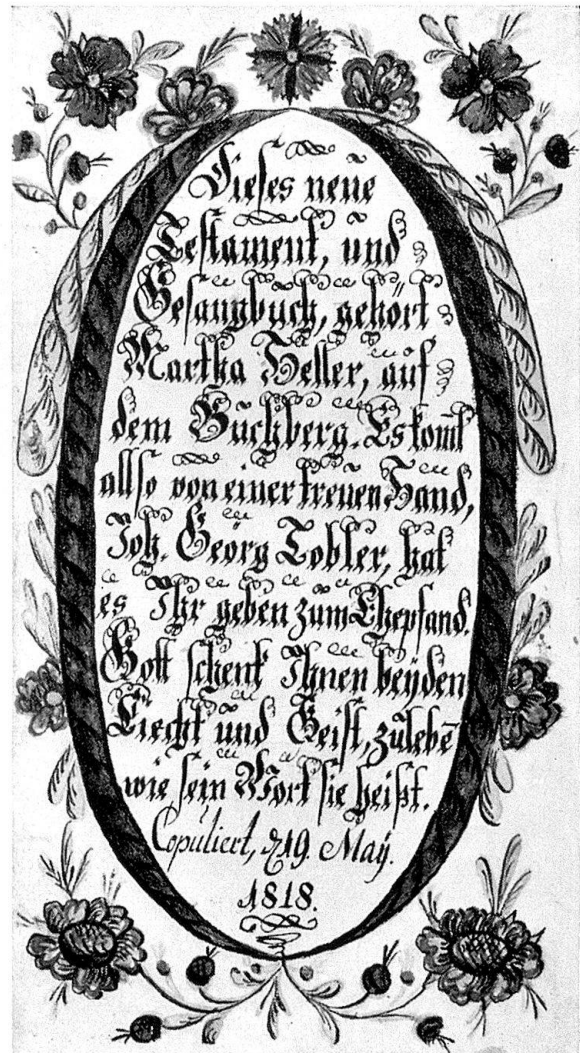 Dieses neüe
Testament, und
Gesangbüch, gehört
Martha Heller, aüf
dem Büchberg. Es komt̄
allso von einer treüen Hand,
Joh. Georg Tobler, hat
es Ihr geben züm Ehepfand.
Gott schenk Ihnen beÿden
Liecht ünd Geist, zü lebē
wie sein Wort sie heißt.
Copuliert, d 19. Maÿ.
1818.